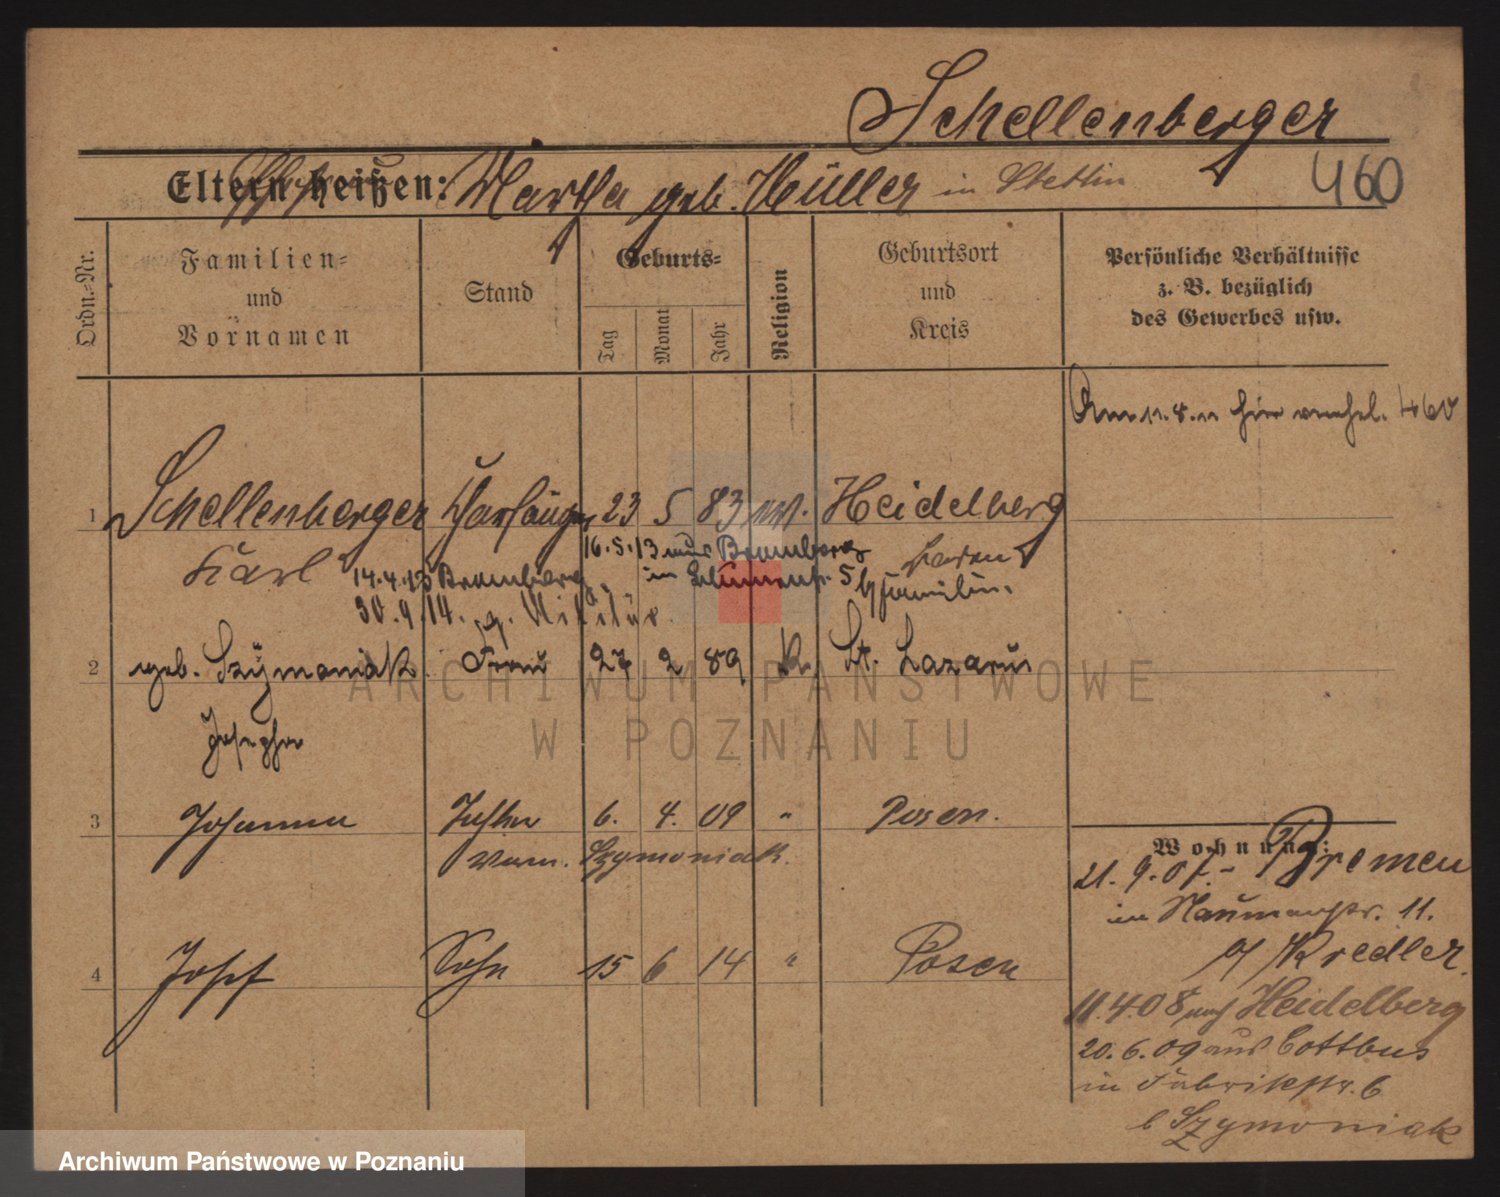 Schellenberger
460
Eltern heißen: Martha geb. Müller in Stettin
Ordn.-Nr.
Familien-
und
Vornamen
Stand
Geburts-
Tag
Monat
Jahr
Religion
Geburtsort
und
Kreis
Persönliche Verhältnisse
z. B. bezüglich
des Gewerbes usw.
Am 11.8.11 hier verehel. 460
1 Schellenberger 23 5 83 Heidelberg
Karl
16.5.13 aus Bromberg
Baden
14.4.13 Bromberg
in Blumenstr. 5 b/ Familie.
30.9.14. z. Militär.
2 geb. Szymaniak Frau 27 2 89 K. St. Lazarus
Josepha
3 Johanna Tochter 6. 4. 09 " Posen.
vorm. Szymoniak.
4 Josef Sohn 15 6 14 " Posen
Wohnung:
21.9.07.- Bremen
in Naumannstr. 11.
b/ Kredler.
11.4.08 nach Heidelberg
20.6.09 aus Cottbus
in Fabrikstr. 6
b Szymoniak
ARCHIWUM PAŃSTWOWE
W POZNANIU
Archiwum Państwowe w Poznaniu